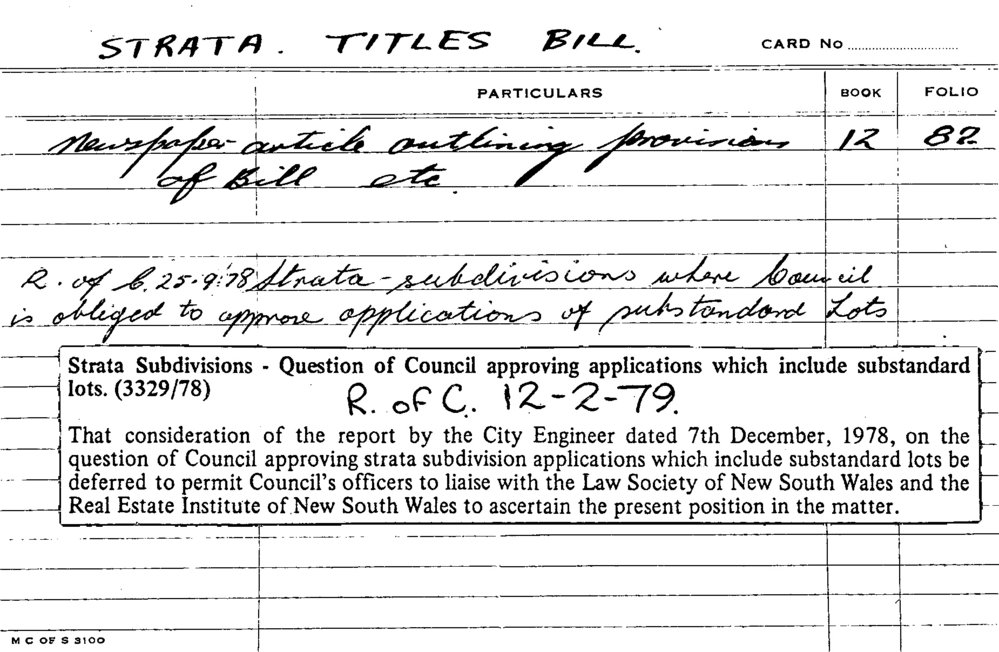 STRATA. TITLES BILL.
CARD No
PARTICULARS BOOK FOLIO
Newspaper article outlining provisions 12 82
of Bill etc.
R. of C. 25.9.78 Strata-subdivisions where Council
is obliged to approve applications of substandard Lots
Strata Subdivisions - Question of Council approving applications which include substandard
lots. (3329/78)
R. of C. 12-2-79.
That consideration of the report by the City Engineer dated 7th December, 1978, on the
question of Council approving strata subdivision applications which include substandard lots be
deferred to permit Council's officers to liaise with the Law Society of New South Wales and the
Real Estate Institute of New South Wales to ascertain the present position in the matter.
M C OF S 3100